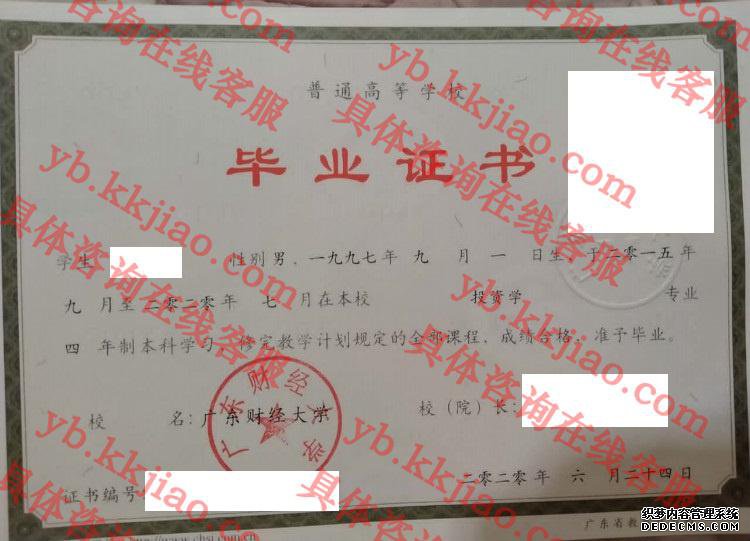 普通高等学校
毕业证书
学生 性别男，一九九七年 九 月 一 日生，于二〇一五年
九 月至二〇二〇年 七 月在本校 投资学 专业
四 年制本科学习，修完教学计划规定的全部课程，成绩合格，准予毕业。
校 名：广东财经大学 校（院）长：
广东财经大学
二〇二〇年 六 月二十四日
证书编号
http://www.chsi.com.cn
广东省教
具体咨询在线客服
yb.kkjiao.com
具体咨询在线客服
yb.kkjiao.com
具体咨询在线客服
yb.kkjiao.com
具体咨询在线客服
yb.kkjiao.com
具体咨询在线客服
yb.kkjiao.com
具体咨询在线客服
织梦内容管理系统
DEDECMS.COM